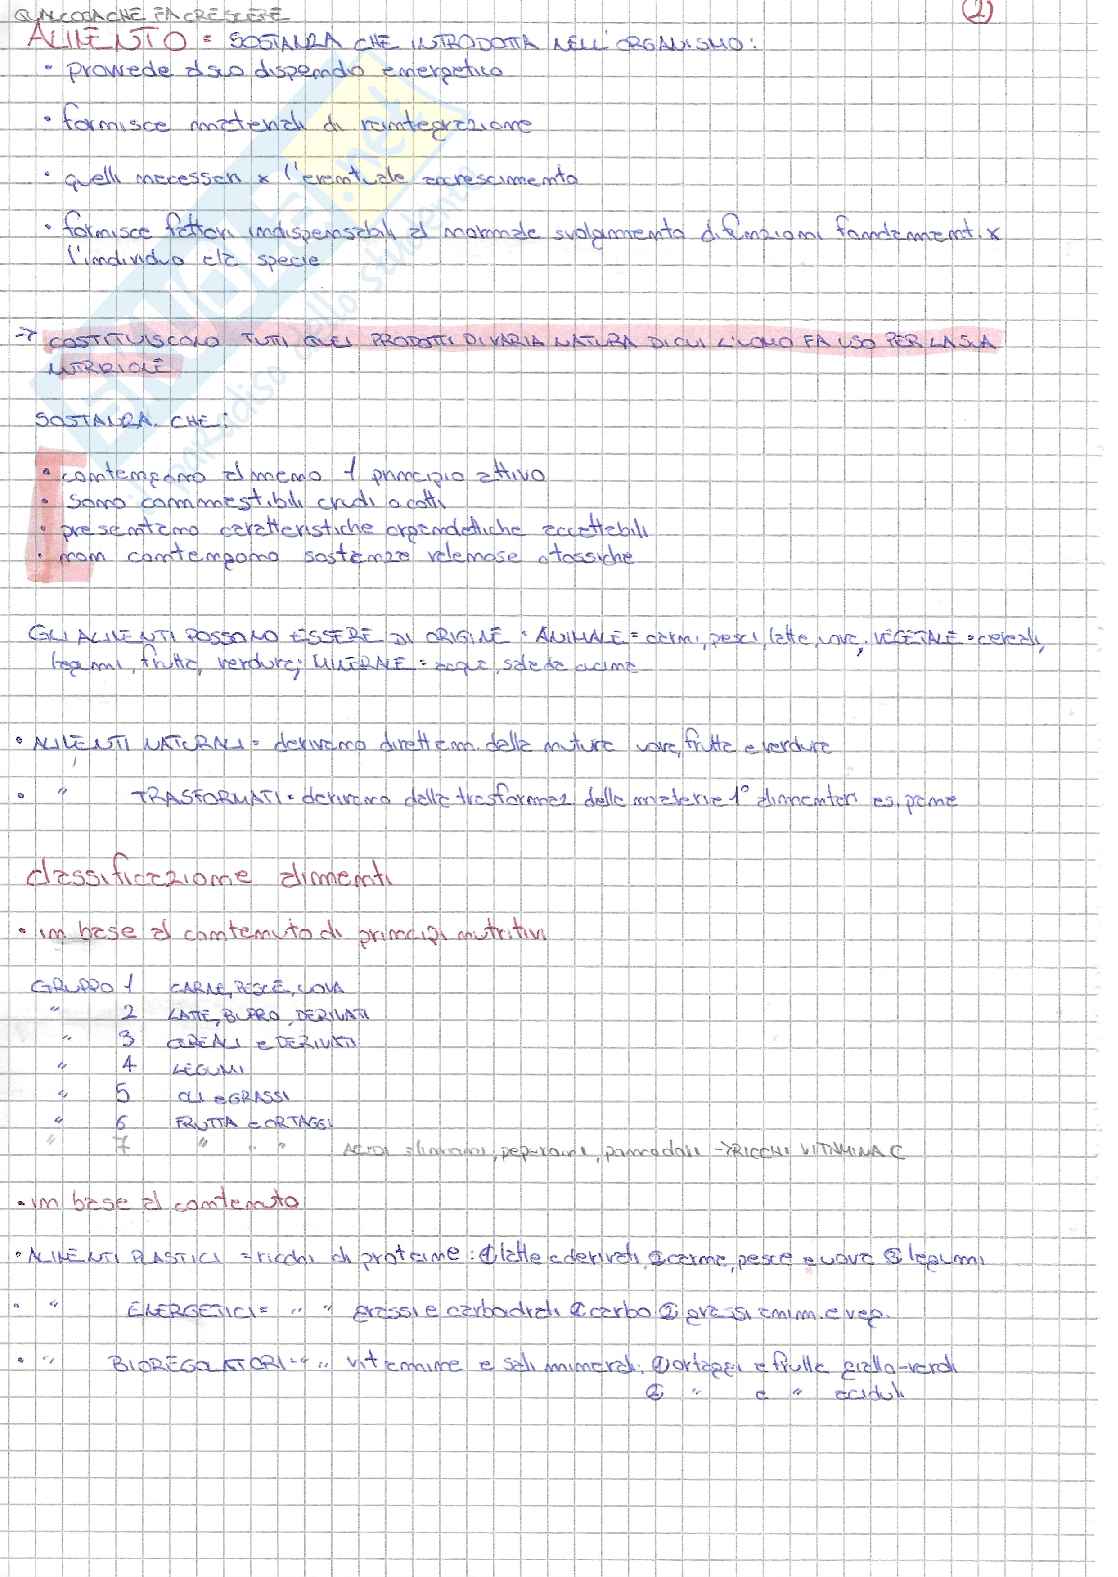 QUALCOSA CHE FA CRESCERE
2)
ALIMENTO = SOSTANZA CHE INTRODOTTA NELL'ORGANISMO:
• provvede al suo dispendio energetico
• fornisce materiali di reintegrazione
• quelli necessari x l'eventuale accrescimento
• fornisce fattori indispensabili al normale svolgimento di funzioni fondament. x
l'individuo e la specie
→ COSTITUISCONO TUTTI QUEI PRODOTTI DI VARIA NATURA DI CUI L'UOMO FA USO PER LA SUA
NUTRIZIONE
SOSTANZA CHE:
• contengano almeno 1 principio attivo
• sono commestibili crudi o cotti
• presentano caratteristiche organolettiche accettabili
• non contengono sostanze velenose o tossiche
GLI ALIMENTI POSSONO ESSERE DI ORIGINE: ANIMALE = carni, pesci, latte, uova; VEGETALE = cereali,
legumi, frutta, verdura; MINERALE = acqua, sale da cucina
• ALIMENTI NATURALI = derivano direttam. dalla natura uova, frutta e verdura
• " TRASFORMATI = derivano dalla trasformaz. delle materie 1° alimentari es. pane
classificazione alimenti
• in base al contenuto di principi nutritivi
GRUPPO 1 CARNE, PESCE, UOVA
" 2 LATTE, BURRO, DERIVATI
" 3 CEREALI e DERIVATI
" 4 LEGUMI
" 5 OLI e GRASSI
" 6 FRUTTA e ORTAGGI
" 7 " " " ACIDI peperoni, pomodori → RICCHI VITAMINA C
• in base al contenuto
• ALIMENTI PLASTICI = ricchi di proteine: ① latte e derivati, ② carne, pesce e uova ③ legumi
• " ENERGETICI = " " grassi e carboidrati ① carbo ② grassi anim. e veg.
• " BIOREGOLATORI = " " vitamine e sali minerali. ① ortaggi e frutta giallo-verdi
② " e " aciduli